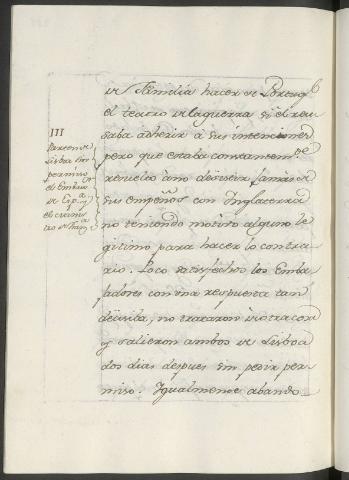 de Familia hacer de Portug.l
el teatro de la guerra si el reu
saba adherir à sus intenciones
pero que estaba constantem.te
resuelto à no desistir jamàs de
sus empeños con Inglaterra
no teniendo motivo alguno le
gitimo para hacer lo contra
rio. Poco satisfechos los Emba
jadores con una respuesta tan
decisiva, no trataron de otra cosa
y salieron ambos de Lisboa
dos dias despues sin pedir per
miso. Igualmente abando
III
Parten de
Lisboa sin
permiso
el Embax.or
de Esp.a y
el minis
tro de Fran.a